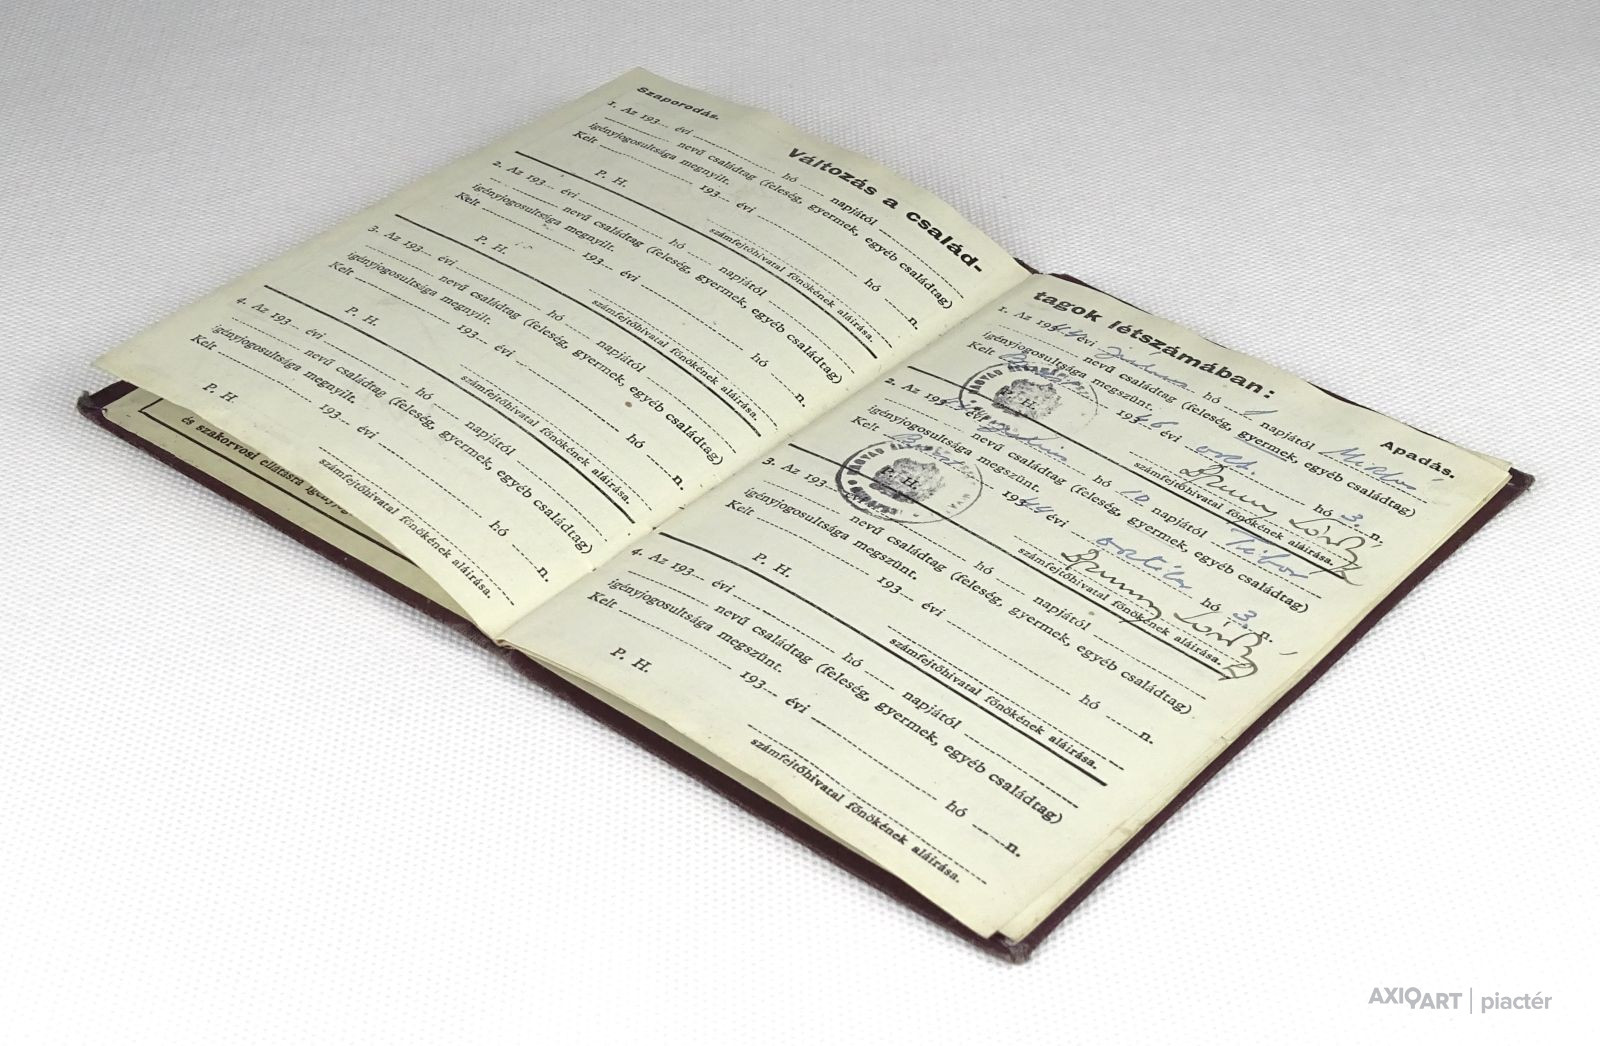 Szaporodás.
Változás a család-
1. Az 193... évi hó napjától
nevű családtag (feleség, gyermek, egyéb családtag)
igényjogosultsága megnyilt.
Kelt 193... évi hó n.
P. H.
számfejtőhivatal főnökének aláírása.
2. Az 193... évi hó napjától
nevű családtag (feleség, gyermek, egyéb családtag)
igényjogosultsága megnyilt.
Kelt 193... évi hó n.
P. H.
számfejtőhivatal főnökének aláírása.
3. Az 193... évi hó napjától
nevű családtag (feleség, gyermek, egyéb családtag)
igényjogosultsága megnyilt.
Kelt 193... évi hó n.
P. H.
számfejtőhivatal főnökének aláírása.
4. Az 193... évi hó napjától
nevű családtag (feleség, gyermek, egyéb családtag)
igényjogosultsága megnyilt.
Kelt 193... évi hó n.
P. H.
számfejtőhivatal főnökének aláírása.
és szakorvosi ellátásra
tagok létszámában:
Apadás.
1. Az 1944 évi hó 1 napjától
nevű családtag (feleség, gyermek, egyéb családtag)
igényjogosultsága megszünt.
Kelt évi hó 3. n.
P. H.
számfejtőhivatal főnökének aláírása.
2. Az évi hó 10 napjától Tibor
nevű családtag (feleség, gyermek, egyéb családtag)
igényjogosultsága megszünt.
Kelt 1944 évi október hó 3. n.
P. H.
számfejtőhivatal főnökének aláírása.
3. Az 193... évi hó napjától
nevű családtag (feleség, gyermek, egyéb családtag)
igényjogosultsága megszünt.
Kelt 193... évi hó n.
P. H.
számfejtőhivatal főnökének aláírása.
4. Az 193... évi hó napjától
nevű családtag (feleség, gyermek, egyéb családtag)
igényjogosultsága megszünt.
Kelt 193... évi hó n.
P. H.
számfejtőhivatal főnökének aláírása.
AXIOART | piactér